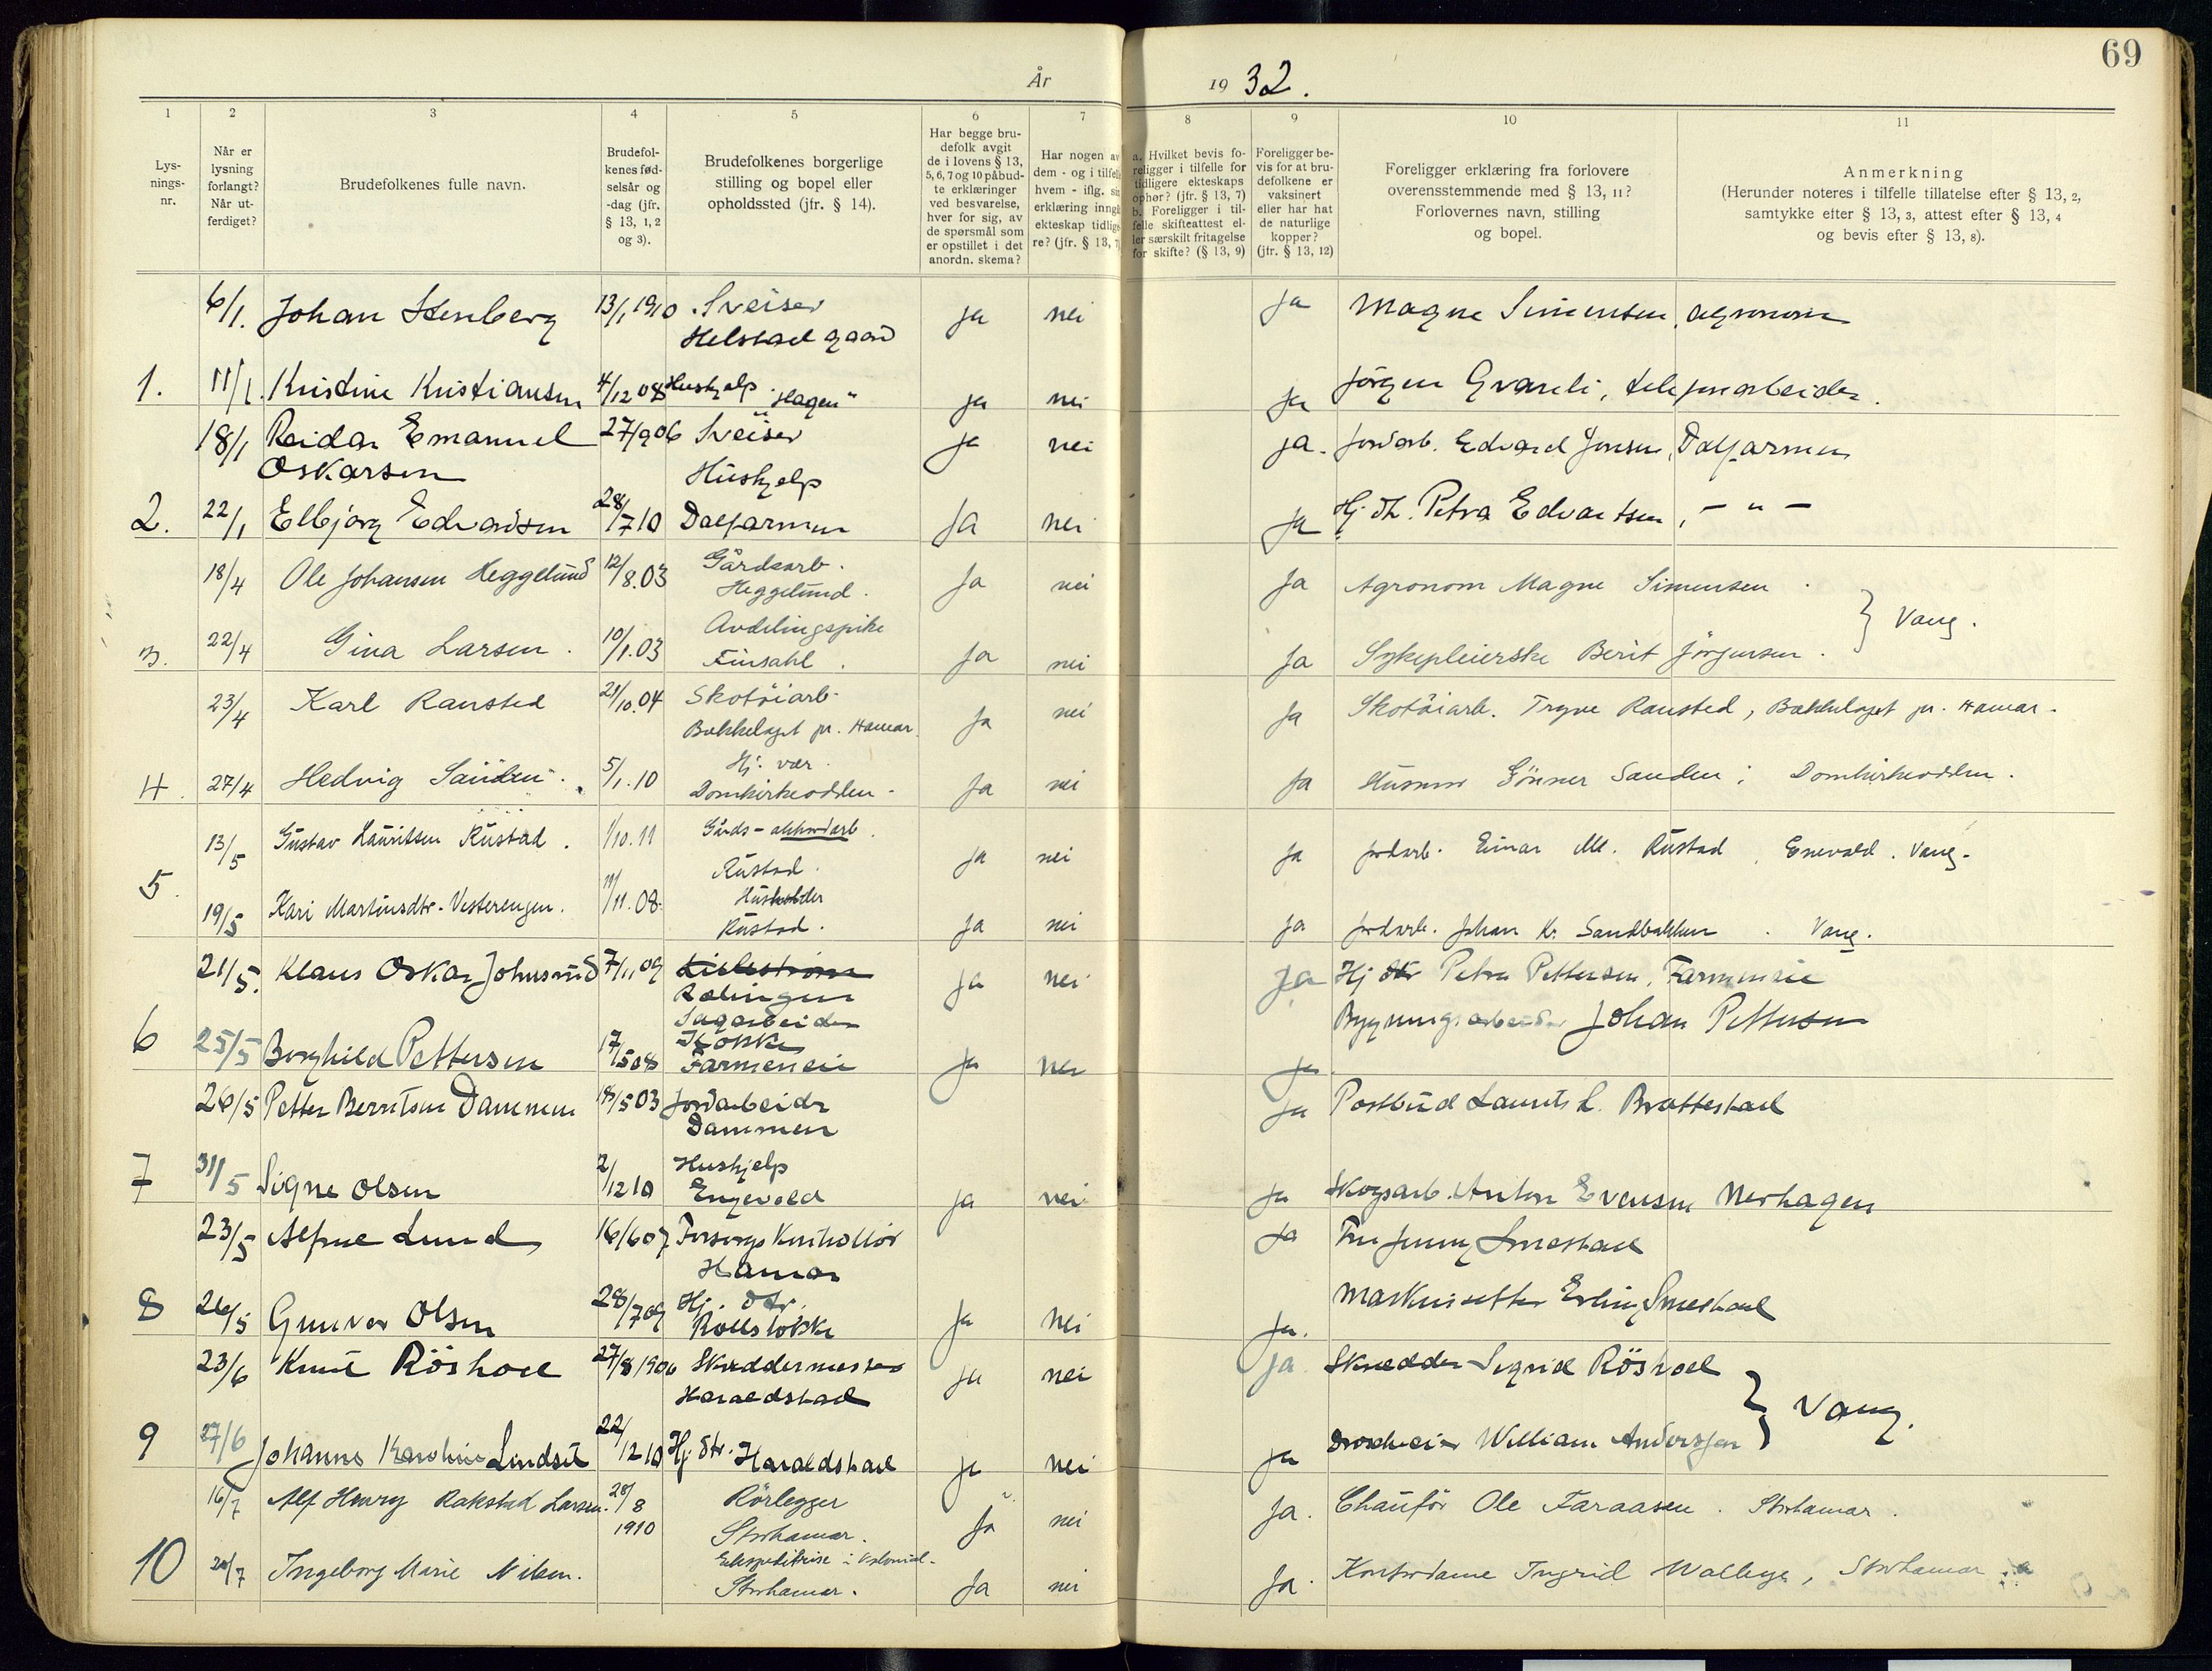 69
År 1932.
1 2 3 4 5 6 7 8 9 10 11
Lysningsnr.
Når er lysning forlangt? Når utferdiget?
Brudefolkenes fulle navn.
Brudefolkenes fødselsår og -dag (jfr. § 13, 1, 2 og 3).
Brudefolkenes borgerlige stilling og bopel eller opholdssted (jfr. § 14).
Har begge brudefolk avgit de i lovens § 13, 5, 6, 7 og 10 påbudte erklæringer ved besvarelse, hver for sig, av de spørsmål som er opstillet i det anordn. skema?
Har nogen av dem - og i tilfelle hvem - iflg. sin erklæring inngå ekteskap tidligere? (jfr. § 13, 7)
a. Hvilket bevis foreligger i tilfelle for tidligere ekteskaps ophør? (jfr. § 13, 7) b. Foreligger i tilfelle skifteattest eller særskilt fritagelse for skifte? (§ 13, 9)
Foreligger bevis for at brudefolkene er vaksinert eller har hat de naturlige kopper? (jfr. § 13, 12)
Foreligger erklæring fra forlovere overensstemmende med § 13, 11? Forlovernes navn, stilling og bopel.
Anmerkning (Herunder noteres i tilfelle tillatelse efter § 13, 2, samtykke efter § 13, 3, attest efter § 13, 4 og bevis efter § 13, 8).
6/1. Johan Stenberg 13/1 1910 Sveiser Helstad gaard ja nei ja Magne Simensen, agronom
1. 11/1. Kristine Kristiansen 4/12 08 Hushjelp "Hagen" ja nei ja Jörgen Gvarli, telefonarbeider.
18/1 Reidar Emanuel Oskarsen 27/9 06 Sveiser ja nei ja. Jordarb. Edvard Jensen, Dalfarmen
2. 22/1 Elbjörg Edvardsen 28/7 10 Hushjelp Dalfarmen ja nei ja Hj. dtr. Petra Edvartsen, - " -
18/4 Ole Johansen Heggelund 12/8.03 Gårdsarb. Heggelund. ja nei ja Agronom Magne Simensen } Vang.
3. 22/4 Gina Larsen. 10/1.03 Avdelingspike Finsahl. ja nei ja Sykepleierske Berit Jörgensen.
23/4 Karl Ransted 21/10.04 Skotöiarb. Bakkelaget pr. Hamar ja nei ja Skotöiarb. Trygve Ransted, Bakkelaget pr. Hamar.
4. 27/4 Hedvig Sanden. 5/1.10 Hj. vær. Domkirkeodden. ja nei ja Husmor Gönner Sanden, Domkirkeodden.
13/5 Gustav Lauritsen Rustad. 1/10.11 Gårds-akkordarb. Rustad. ja nei ja jordarb. Einar M. Rustad, Enevald. Vang.
5. 19/5 Kari Martinsdtr. Vesterengen. 11/11.08 Husholder Rustad. ja nei ja jordarb. Johan Kr. Sandbakken. Vang.
21/5. Klaus Oskar Johnsrud 7/11 09 Lilleström Rælingen Sagarbeider ja nei ja Hj dtr Petra Pettersen, Farmeneie
6 25/5 Borghild Pettersen 17/5 08 Kokke Farmeneie ja nei ja Bygningsarbeider Johan Pettersen
26/5 Petter Berntsen Dammen 18/5 03 Jordarbeider Dammen ja Postbud Laurits L. Brattestad
7 31/5 Signe Olsen 2/12 10 Hushjelp Engevold ja nei ja Skogsarb. Anton Evensen Nerhagen
23/5 Alfred Lund 16/6 07 Kontrollör Hamar ja Fru Jenny Smestad
8 26/5 Gunvor Olsen 28/7 09 Hj. dtr. Rollslökke ja nei ja. Maskinsetter Erling Smestad
23/6 Knut Röshol 27/8 1906 Skreddermester Haraldstad ja nei ja Skredder Sigrid Röshol } Vang.
9 27/6 Johanne Karoline Lindset 22/12 10 Hj dtr. Haraldstad ja nei ja Droscheeier William Anderssen
16/7 Alf Henry Rakstad Larsen. 28/8 1910 Rörlegger Storhamar. ja nei ja. Chauför Ole Faraasen. Storhamar.
10 20/7 Ingeborg Marie Nilsen. Ekspeditrise i kolonial. Storhamar. ja nei ja. Kontordame Ingrid Wallbye, Storhamar